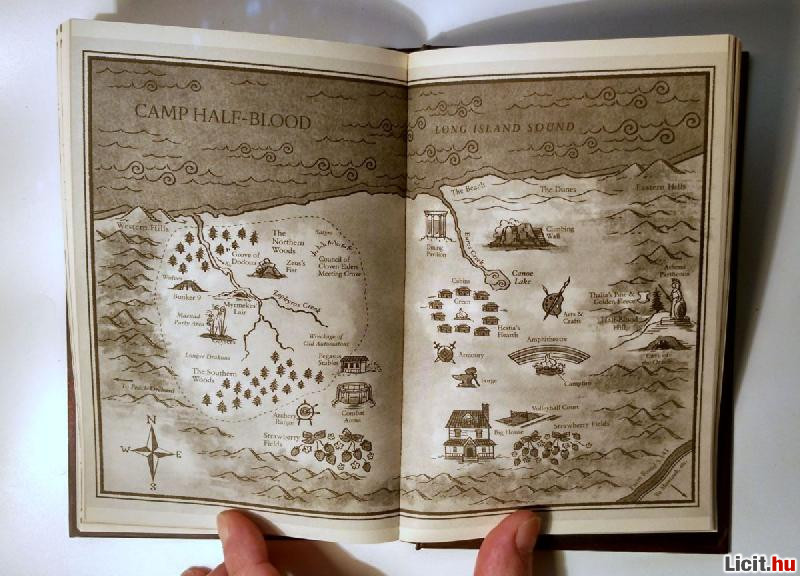 CAMP HALF-BLOOD
LONG ISLAND SOUND
The Beach
The Dunes
Eastern Hills
Western Hills
The
Northern
Woods
Satyrs
Grove of
Dodona
Zeus's
Fist
Council of
Cloven Elders
Meeting Grove
Bunker 9
Myrmekes
Lair
Zephyros Creek
Maenad
Party Area
Wreckage of
Old Automatons
Pegasus
Stables
The Southern
Woods
To Peach Orchard
Archery
Range
Combat
Arena
Strawberry
Fields
N
W
E
S
Dining
Pavilion
Climbing
Wall
Canoe
Lake
Cabins
Green
Hestia's
Hearth
Arts &
Crafts
Athena
Parthenos
Thalia's Pine &
Golden Fleece
Half-Blood
Hill
Armory
Amphitheatre
Forge
Campfire
Big House
Volleyball Court
Strawberry Fields
Farm Road 3.141
Licit.hu